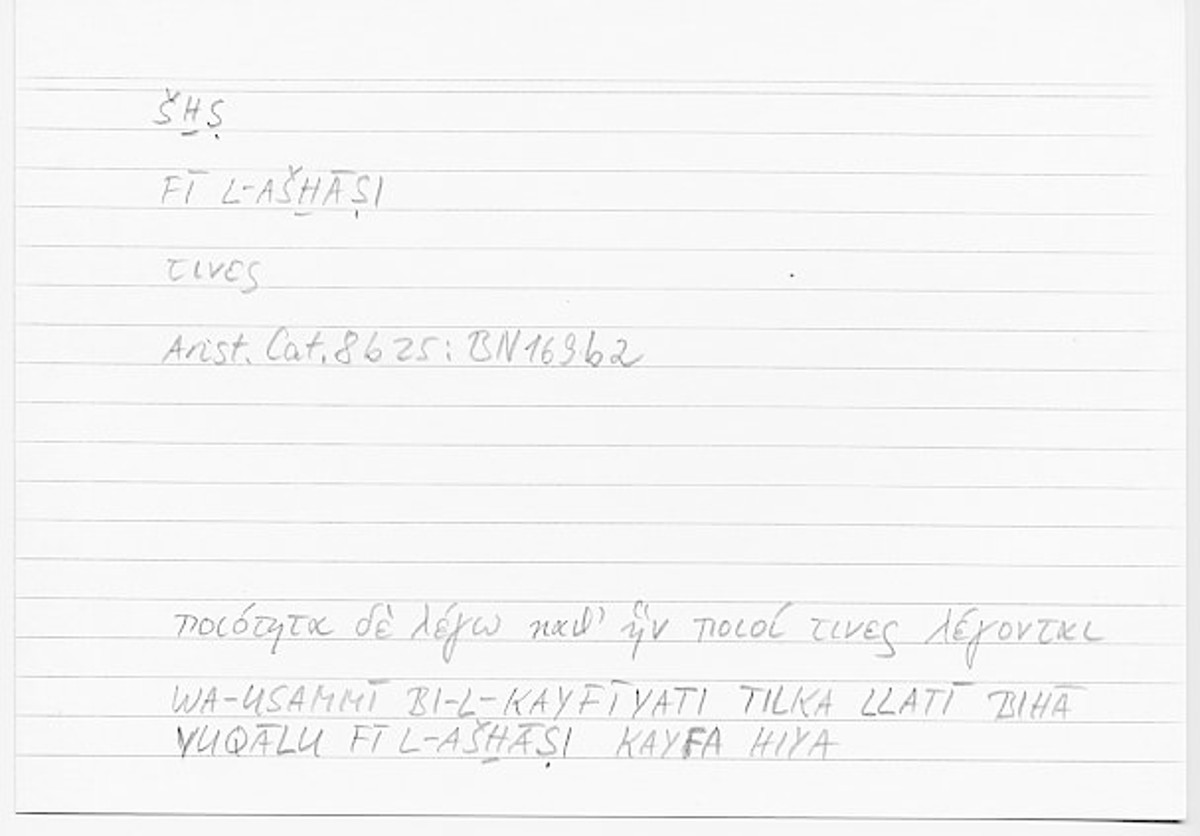 ŠH̱Ṣ
FĪ L-AŠH̱ĀṢI
τινες
Arist. Cat. 8b25: BN169b2
ποιότητα δὲ λέγω καθ' ἣν ποιοί τινες λέγονται
WA-USAMMĪ BI-L-KAYFĪYATI TILKA LLATĪ BIHĀ
YUQĀLU FĪ L-AŠH̱ĀṢI KAYFA HIYA